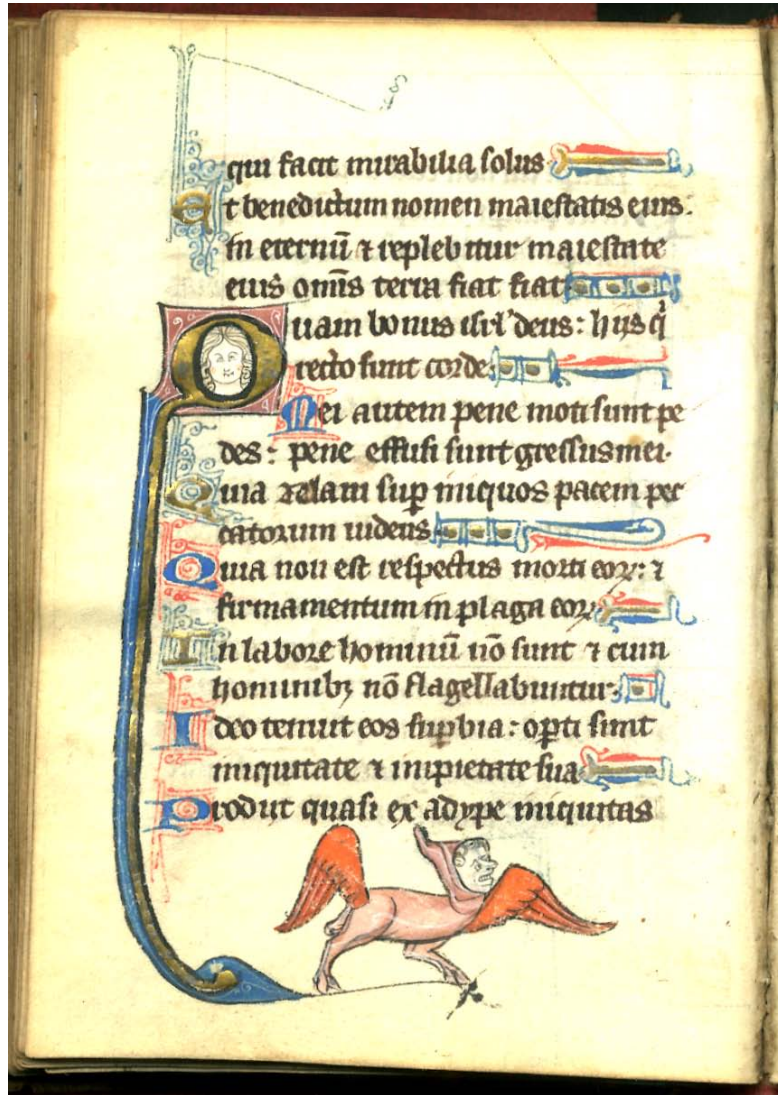 qui facit mirabilia solus
Et benedictum nomen maiestatis eius:
in eternū ⁊ replebitur maiestate
eius omīs terra fiat fiat
Quam bonus isrl' deus: hijs q̇
recto sunt corde
Mei autem pene moti sunt pe
des: pene effusi sunt gressus mei.
Quia zelaui suꝑ iniquos pacem pec
catorum uidens
Quia non est respectus morti eoꝝ: ⁊
firmamentum in plaga eoꝝ
In labore hominū nō sunt ⁊ cum
hominibꝫ nō flagellabuntur
Ideo tenuit eos suꝑbia: oꝑti sunt
iniquitate ⁊ impietate sua
Prodijt quasi ex adype iniquitas